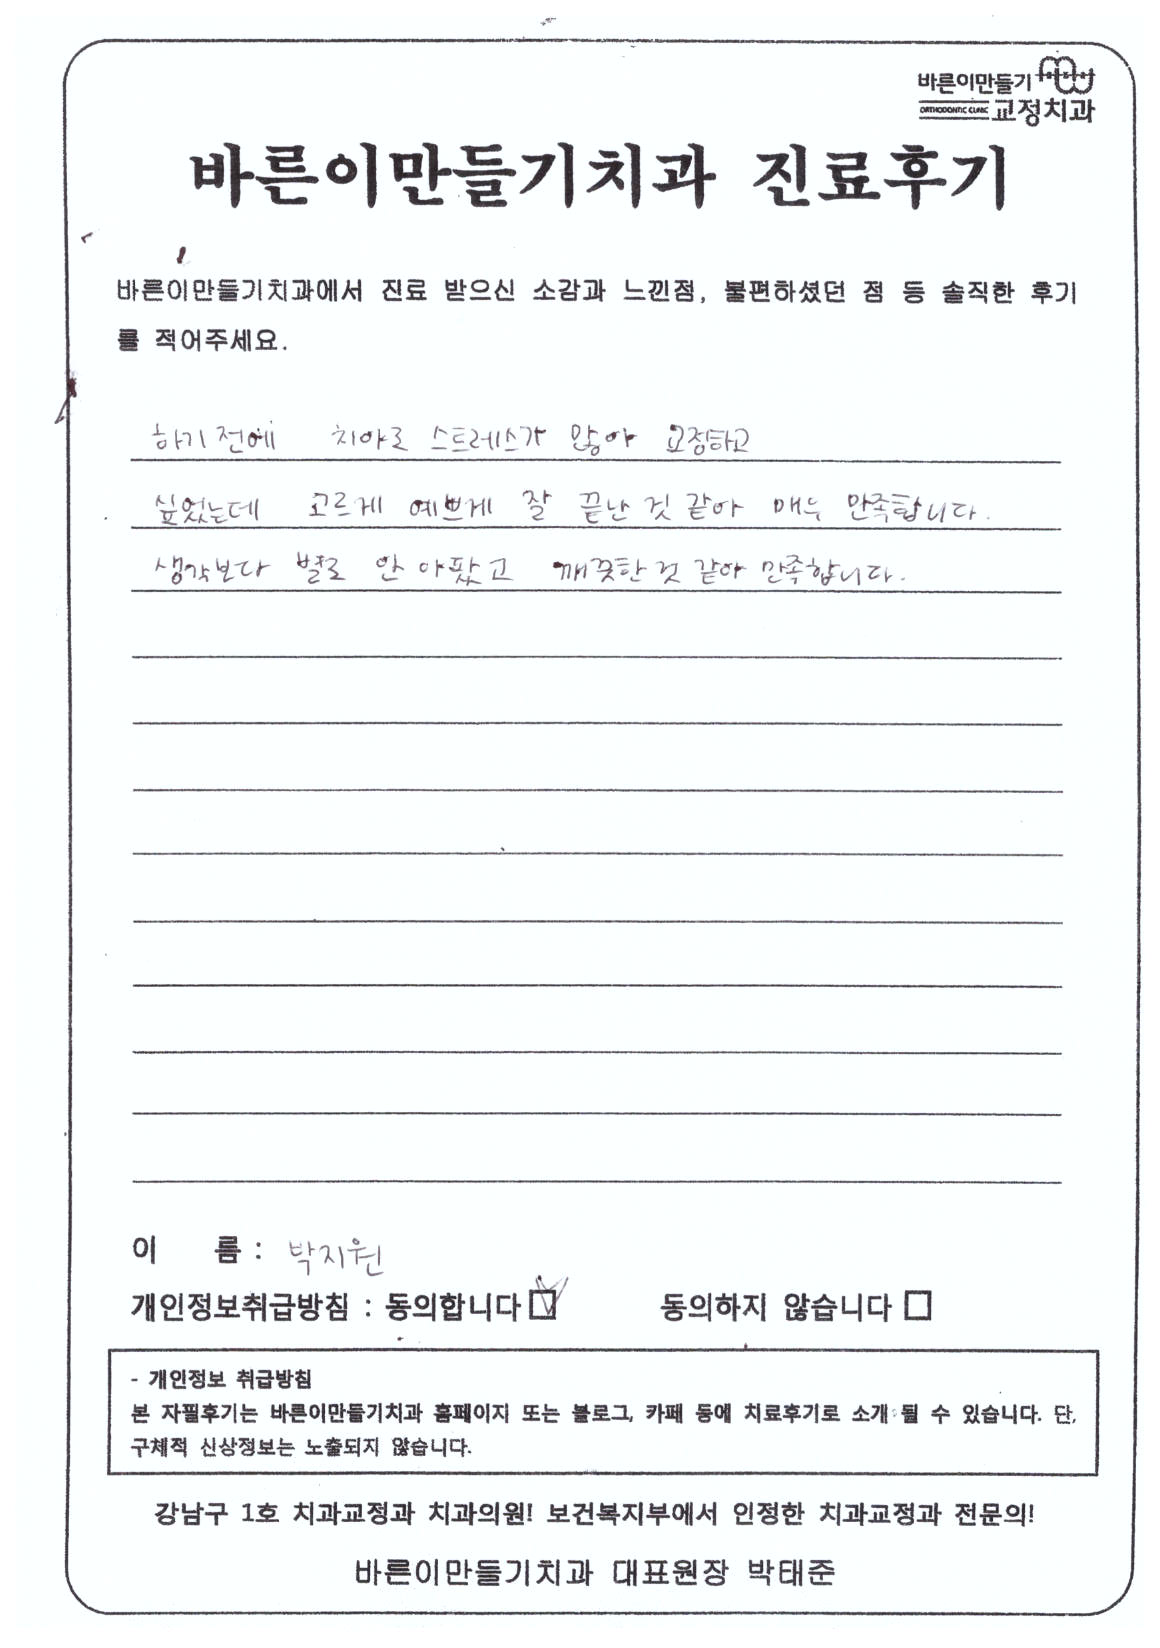 바른이만들기
ORTHODONTIC CLINIC 교정치과
바른이만들기치과 진료후기
바른이만들기치과에서 진료 받으신 소감과 느낀점, 불편하셨던 점 등 솔직한 후기
를 적어주세요.
하기 전에 치아로 스트레스가 많아 교정하고
싶었는데 고르게 예쁘게 잘 끝난 것 같아 매우 만족합니다.
생각보다 별로 안 아팠고 깨끗한 것 같아 만족합니다.
이 름 : 박지원
개인정보취급방침 : 동의합니다 ☑ 동의하지 않습니다 □
- 개인정보 취급방침
본 자필후기는 바른이만들기치과 홈페이지 또는 블로그, 카페 등에 치료후기로 소개 될 수 있습니다. 단,
구체적 신상정보는 노출되지 않습니다.
강남구 1호 치과교정과 치과의원! 보건복지부에서 인정한 치과교정과 전문의!
바른이만들기치과 대표원장 박태준